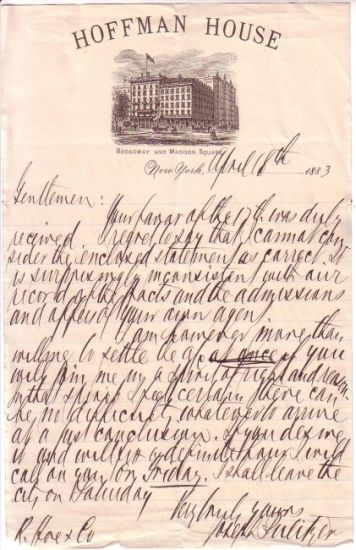 HOFFMAN HOUSE
BROADWAY AND MADISON SQUARE
New York, April 18th 1883
Gentlemen:
Your favor of the 17th was duly
received. I regret to say that I cannot con-
sider the enclosed statement as correct. It
is surprisingly inconsistent with our
record of the facts and the admissions
and of your own agent.
I am however more than
willing to settle at once if you
will join me in a spirit of right and reason
In that spirit I feel certain there can
be no difficulty whatever to arrive
at a just conclusion. If you desire
it and will so I will
call on you on Friday. I shall leave the
city on Saturday
Very truly yours
R. Hoe & Co Joseph Pulitzer